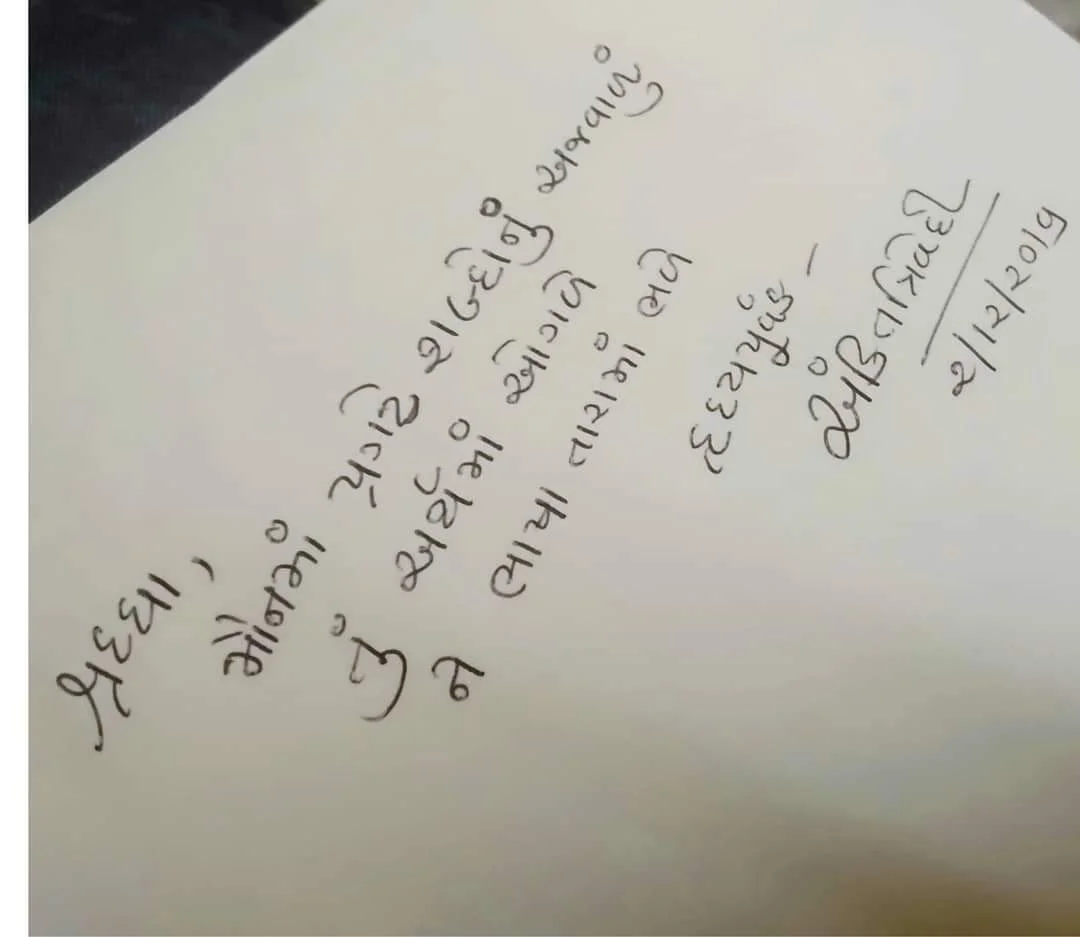 શ્રદ્ધા,
મૌનમાં પ્રગટે શબ્દોનું અજવાળું
તું અર્થમાં ઓગળે
ને ભાષા તારામાં ભળે
હૃદયપૂર્વક -
અંકિત ત્રિવેદી
૨/૧૨/૨૦૧૫